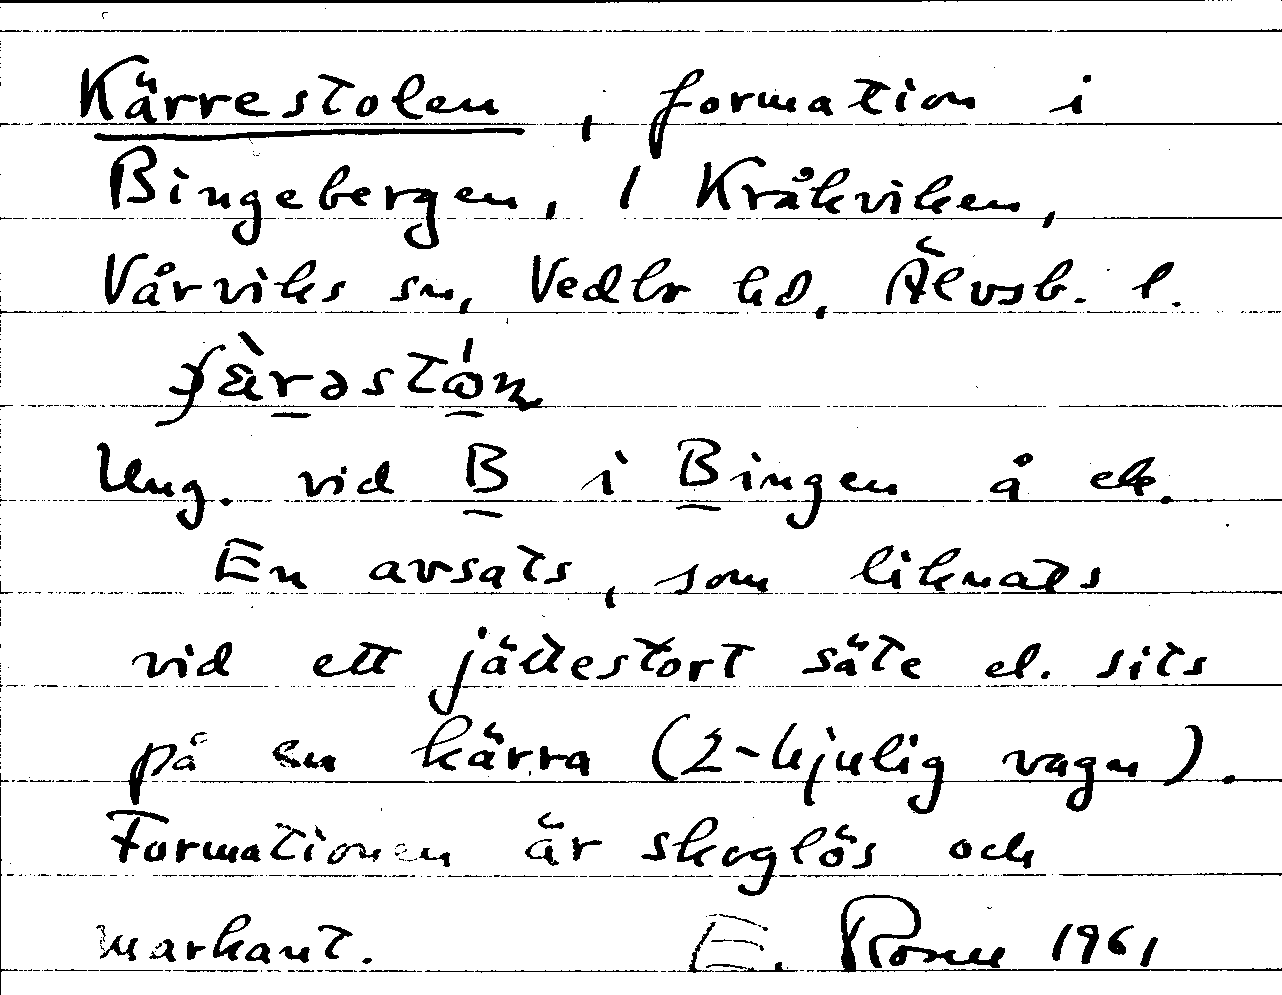 Kärrestolen, formation i
Bingebergen, 1 Kråkviken,
Vårviks sn, Vedbo hd, Älvsb. l.
Ung. vid B i Bingen å ek.
En avsats, som liknats
vid ett jättestort säte el. sits
på en kärra (2-hjulig vagn).
Formationen är skoglös och
markant. E. 1961